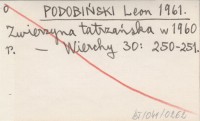 O PODOBIŃSKI Leon 1961.
Zwierzyna tatrzańska w 1960
r. — Wierchy 30: 250-251.